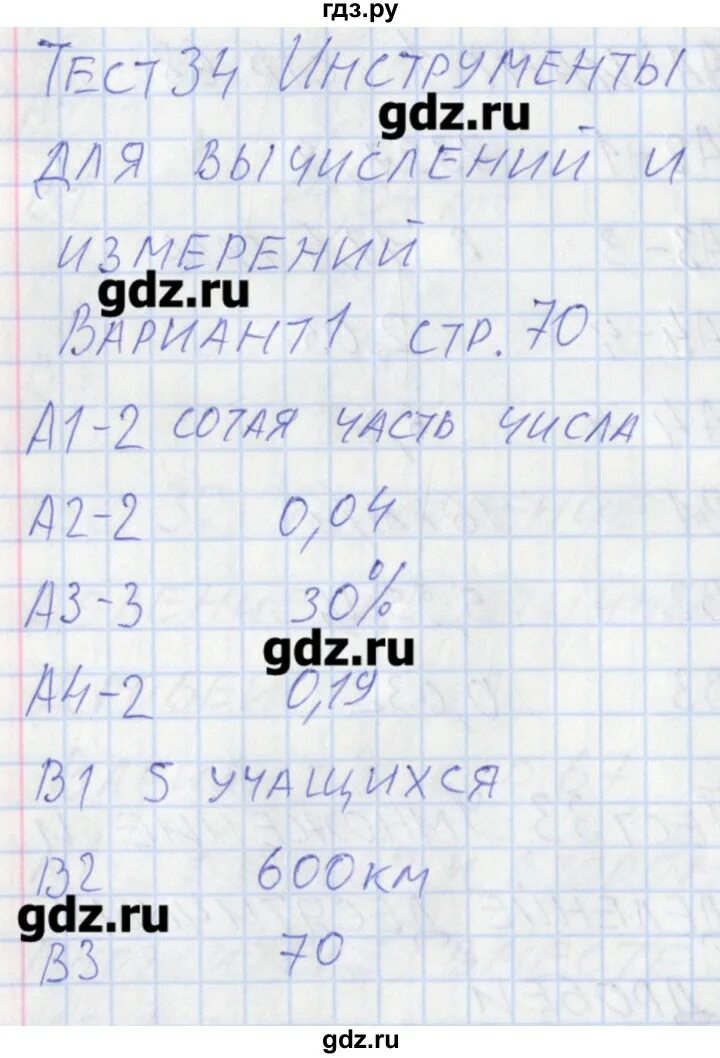 гдз.ру
Тест 34 Инструменты
gdz.ru
для вычислений и
измерений
gdz.ru
Вариант 1 стр. 70
А1-2 сотая часть числа
А2-2 0,04
А3-3 30%
gdz.ru
А4-2 0,19
В1 5 учащихся
В2 600км
gdz.ru
В3 70
gdz.ru